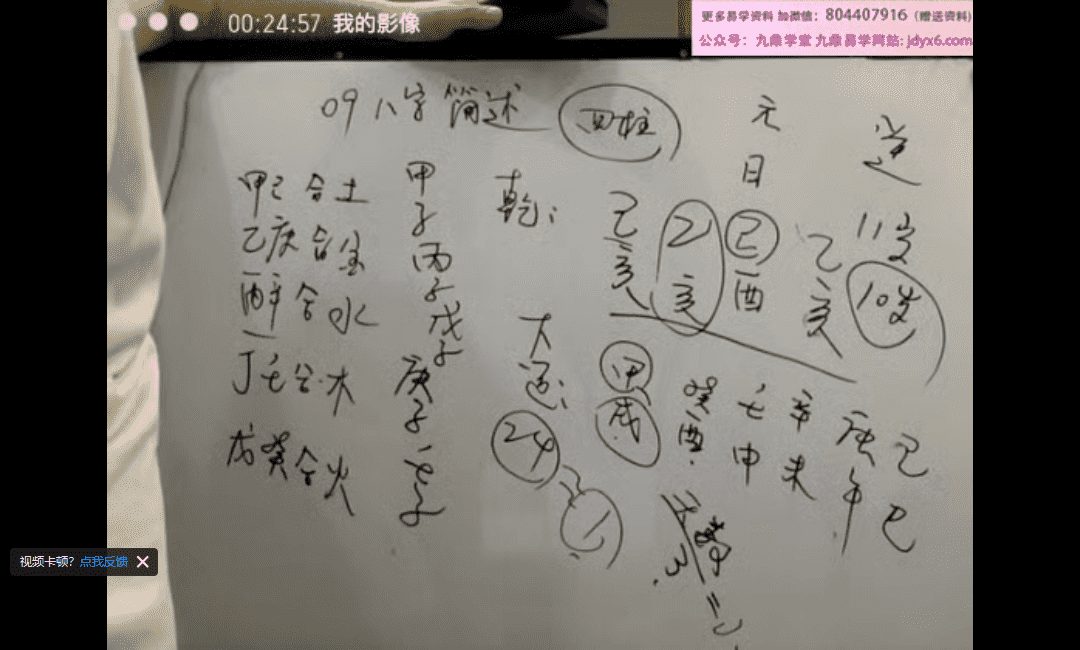 00:24:57 我的影像
更多易学资料 加微信：804407916（赠送资料）
公众号：九鼎学堂 九鼎易学网站: jdyx6.com
09 八字简述 四柱
元
日
造
甲己合土
乙庚合金
丙辛合水
丁壬合木
戊癸合火
甲子
丙子
戊子
庚子
壬子
乾：
己亥
乙亥
己酉
乙亥
11岁
10岁
大运：
甲戌
癸酉
壬申
辛未
庚午
己巳
24
1
3
视频卡顿？点我反馈